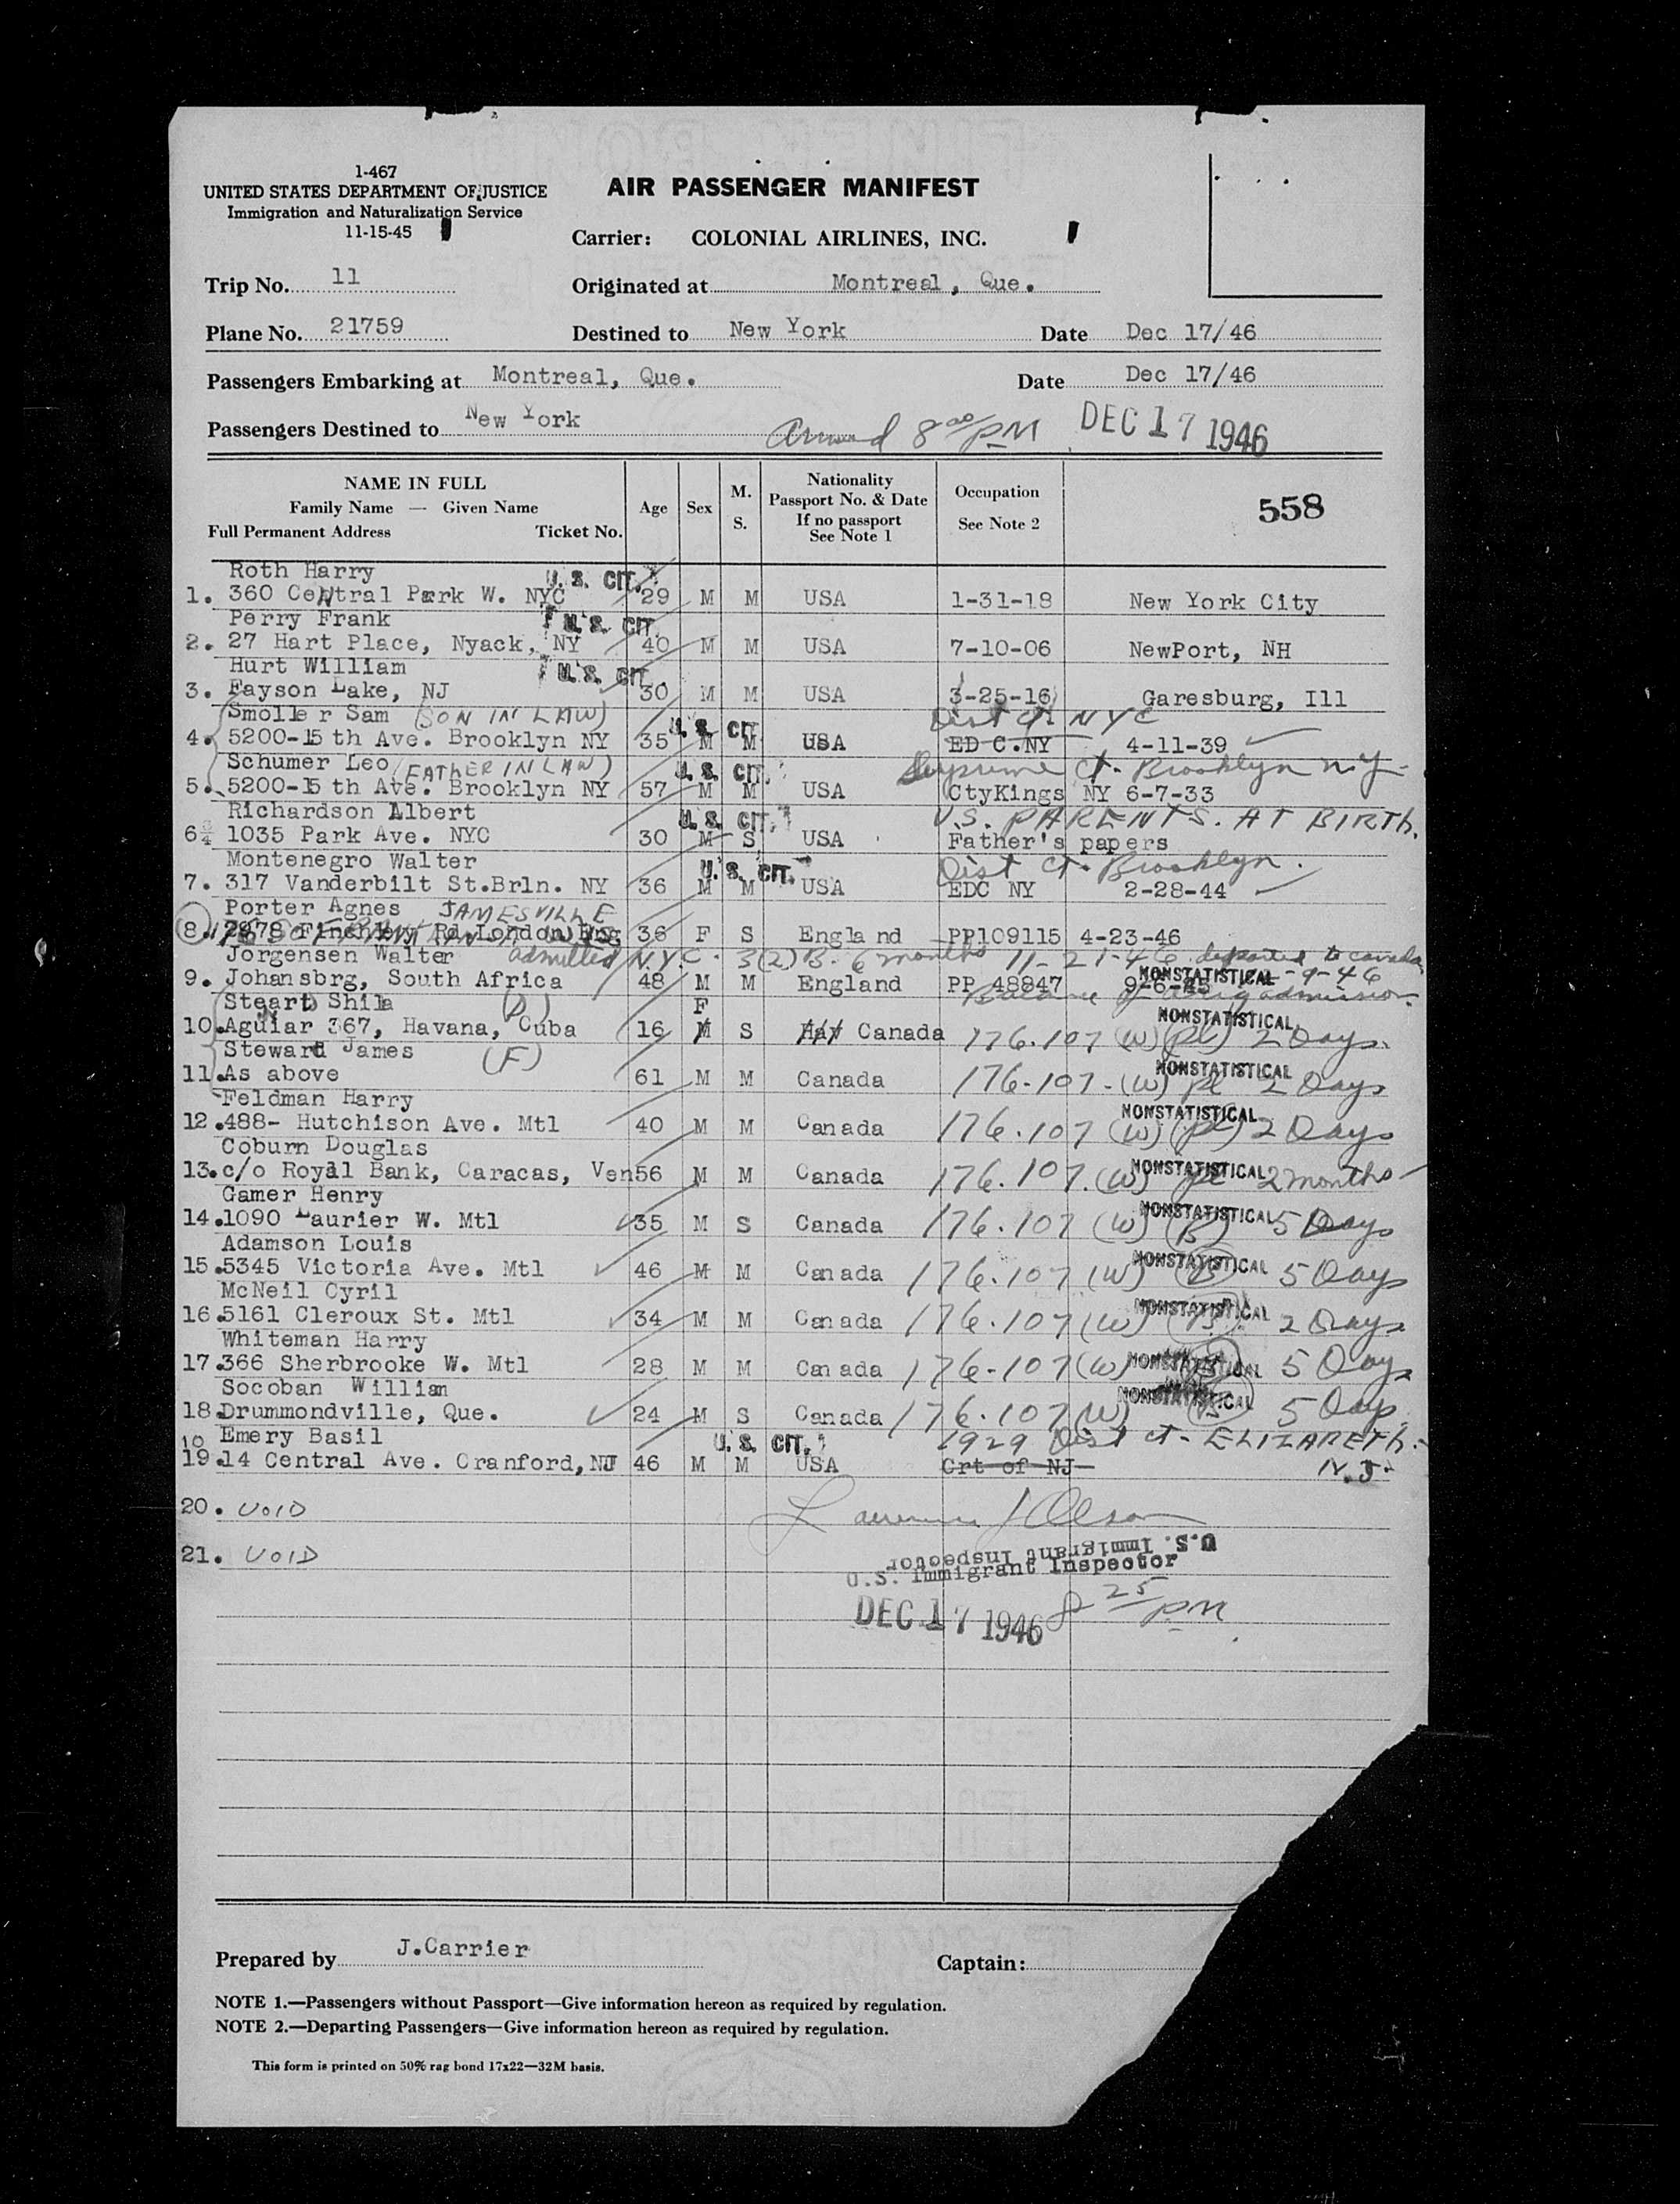 1-467
UNITED STATES DEPARTMENT OF JUSTICE
Immigration and Naturalization Service
11-15-45
AIR PASSENGER MANIFEST
Carrier: COLONIAL AIRLINES, INC.
Trip No. 11
Originated at Montreal, Que.
Plane No. 21759
Destined to New York Date Dec 17/46
Passengers Embarking at Montreal, Que. Date Dec 17/46
Passengers Destined to New York
Arrived 8 00/PM DEC 17 1946
NAME IN FULL
Family Name — Given Name
Full Permanent Address Ticket No.
Age Sex M. S.
Nationality
Passport No. & Date
If no passport
See Note 1
Occupation
See Note 2
558
Roth Harry U. S. CIT.
1. 360 Central Park W. NYC 29 M M USA 1-31-18 New York City
Perry Frank U. S. CIT.
2. 27 Hart Place, Nyack, NY 40 M M USA 7-10-06 NewPort, NH
Hurt William U. S. CIT.
3. Fayson Lake, NJ 30 M M USA 3-25-16 Garesburg, Ill
Smoller Sam (SON IN LAW) U. S. CIT. Dist Ct NYC
4. 5200-15 th Ave. Brooklyn NY 35 M M USA ED C.NY 4-11-39
Schumer Leo (FATHER IN LAW) U. S. CIT. Supreme Ct. Brooklyn N.Y.
5. 5200-15 th Ave. Brooklyn NY 57 M M USA CtyKings NY 6-7-33
Richardson Albert U. S. CIT. U.S. PARENTS. AT BIRTH.
6 1035 Park Ave. NYC 30 M S USA Father's papers
Montenegro Walter U. S. CIT. Dist Ct. Brooklyn.
7. 317 Vanderbilt St.Brln. NY 36 M M USA EDC NY 2-28-44
Porter Agnes JAMESVILLE
8. 2978 Finchley Rd London Eng 36 F S England PP109115 4-23-46
Jorgensen Walter admitted N.Y.C. 3(2)B. 6 months 11-21-46 departed to Canada
9. Johansbrg, South Africa 48 M M England PP 48847 9-6-45 NONSTATISTICAL -9-46
Balance of orig admission.
Steart Shila (D) F NONSTATISTICAL
10. Aguiar 367, Havana, Cuba 16 M S Canada 176.107 (W) (Pl) 2 Days.
Steward James (F) NONSTATISTICAL
11. As above 61 M M Canada 176-107-(W) Pl 2 Days
Feldman Harry NONSTATISTICAL
12. 488- Hutchison Ave. Mtl 40 M M Canada 176.107 (W) (Pl) 2 Days
Coburn Douglas NONSTATISTICAL
13. c/o Royal Bank, Caracas, Ven 56 M M Canada 176.107.(W) Pl 2 months
Gamer Henry NONSTATISTICAL
14. 1090 Laurier W. Mtl 35 M S Canada 176.107 (W) (B) 5 Days
Adamson Louis NONSTATISTICAL
15. 5345 Victoria Ave. Mtl 46 M M Canada 176.107 (W) (B) 5 Days
McNeil Cyril NONSTATISTICAL
16. 5161 Cleroux St. Mtl 34 M M Canada 176.107 (W) (B) 2 Days
Whiteman Harry NONSTATISTICAL
17. 366 Sherbrooke W. Mtl 28 M M Canada 176-107(W) 5 Days
Socoban William NONSTATISTICAL
18. Drummondville, Que. 24 M S Canada 176.107(W) (B) 5 Days
Emery Basil U. S. CIT. 1929 Dist Ct. ELIZABETH.
19. 14 Central Ave. Cranford, NJ 46 M M USA Crt of NJ N.J.
20. VOID
Lawrence J Olson
21. VOID
U.S. Immigrant Inspector
U.S. Immigrant Inspector
DEC 17 1946 8 25/PM
Prepared by J.Carrier
Captain:
NOTE 1.—Passengers without Passport—Give information hereon as required by regulation.
NOTE 2.—Departing Passengers—Give information hereon as required by regulation.
This form is printed on 50% rag bond 17x22—32M basis.